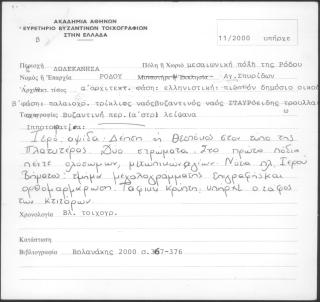 ΑΚΑΔΗΜΙΑ ΑΘΗΝΩΝ
ΕΥΡΕΤΗΡΙΟ ΒΥΖΑΝΤΙΝΩΝ ΤΟΙΧΟΓΡΑΦΙΩΝ
ΣΤΗΝ ΕΛΛΑΔΑ
Β
11/2000 υπήρχε
Περιοχή ΔΩΔΕΚΑΝΗΣΑ Πόλη ή Χωριό μεσαιωνική πόλη της Ρόδου
Νομός ή Ἐπαρχία ΡΟΔΟΥ Μοναστήρι ή Ἐκκλησία Αγ. Σπυρίδων
Ἀρχιτεκτ. τύπος α'αρχιτεκτ. φάση: ελληνιστική: πιθανόν δημόσιο οικοδ
Β'φάση: παλαιοχρ. τρίκλιτος ναός βυζαντινός ναός Σταυροειδής τρουλλαί
Τοιχογραφίες Βυζαντινή περ. (α'στρ) λείψανα
Παρατηρήσεις:
Ιερό, αψίδα: Δέηση ή Θεοτόκος στον τύπο της
Πλατυτέρας. Δύο στρώματα. Στο πρώτο πόδια
πέντε ολόσωμων, μετωπικών αγίων. Νότια πλ. Ιερού
Βήματος: τμήμα μεγαλογράμματης επιγραφής και
ορθομαρμάρωση. Ταφική κρύπτη: υπήρχε ο τάφος
των κτιτόρων.
Χρονολογία Βλ. τοιχογρ.
Κατάσταση
Βιβλιογραφία Βολανάκης 2000 σ.367-376